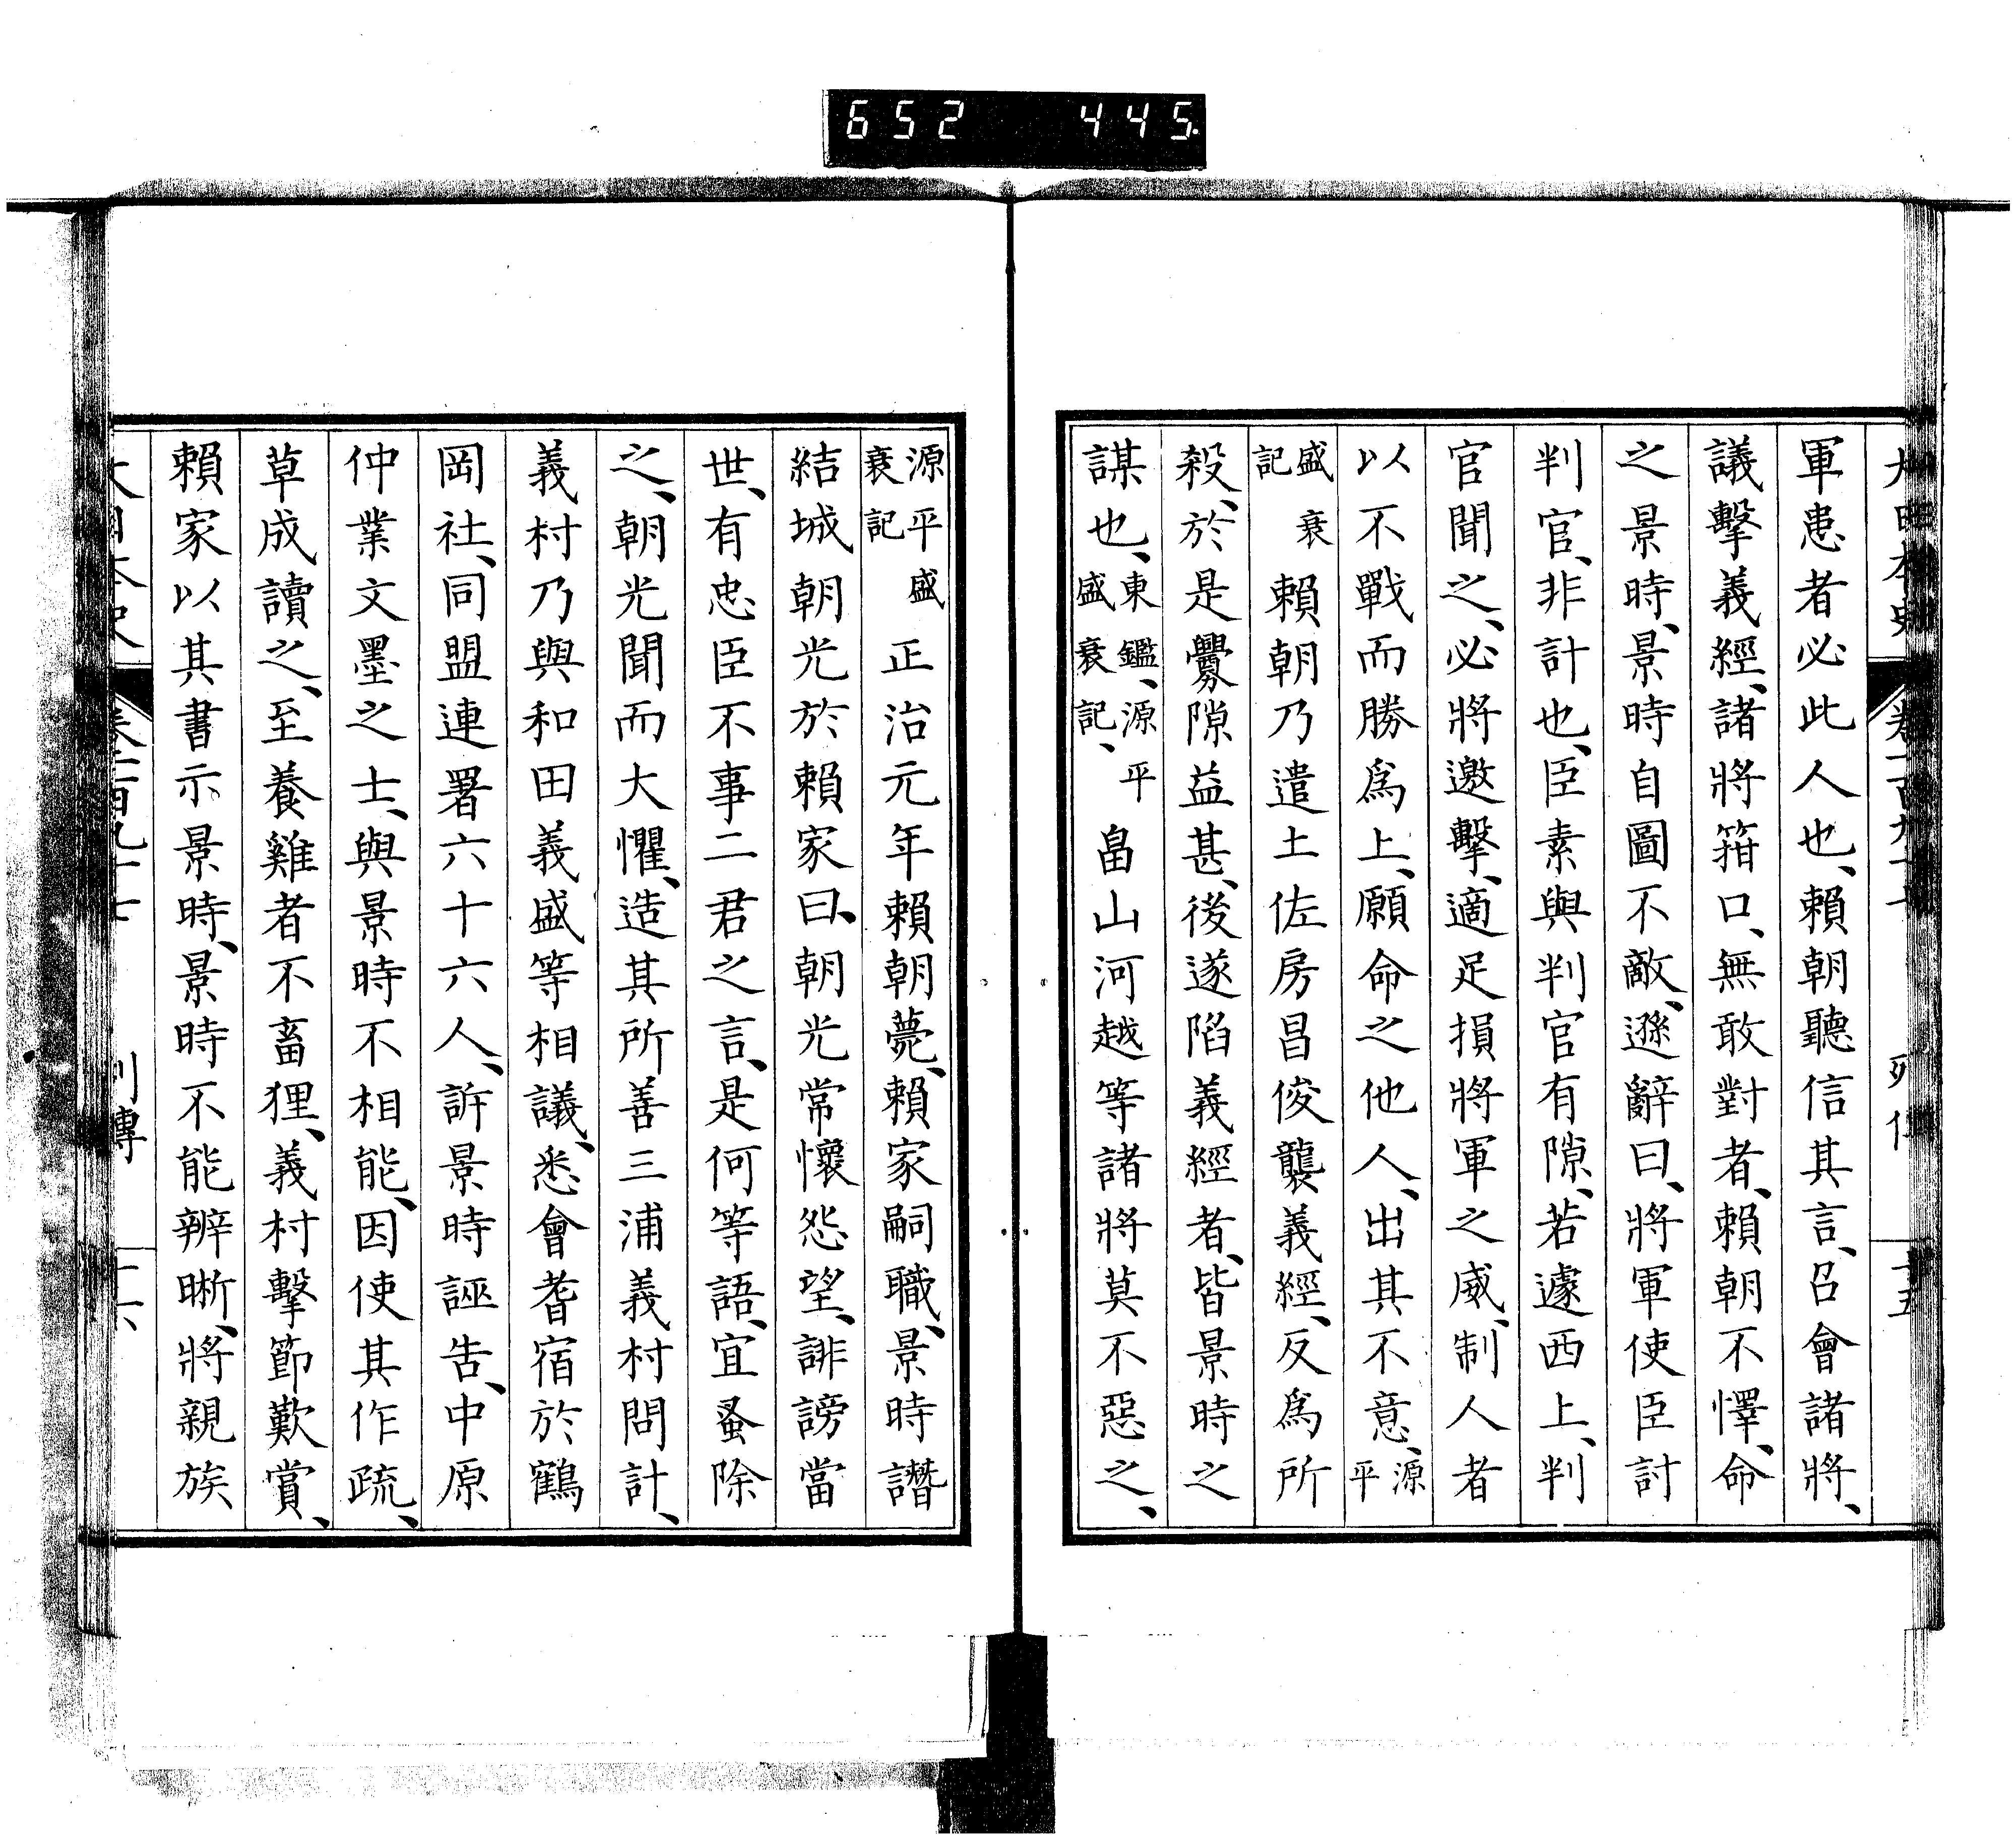 652 445
大日本史 卷一百九十七 列傳 十五
軍患者必此人也、賴朝聽信其言、召會諸將、
議擊義經、諸將箝口、無敢對者、賴朝不懌、命
之景時、景時自圖不敵、遜辭曰、將軍使臣討
判官、非計也、臣素與判官有隙、若遽西上、判
官聞之、必將邀擊、適足損將軍之威、制人者
以不戰而勝爲上、願命之他人、出其不意、源平
盛衰記賴朝乃遣土佐房昌俊襲義經、反爲所
殺、於是釁隙益甚、後遂陷義經者、皆景時之
謀也、東鑑、源平盛衰記、畠山河越等諸將莫不惡之、
源平盛衰記正治元年賴朝薨、賴家嗣職、景時譖
結城朝光於賴家曰、朝光常懷怨望、誹謗當
世、有忠臣不事二君之言、是何等語、宜蚤除
之、朝光聞而大懼、造其所善三浦義村問計、
義村乃與和田義盛等相議、悉會耆宿於鶴
岡社、同盟連署六十六人、訴景時誣告、中原
仲業文墨之士、與景時不相能、因使其作疏、
草成讀之、至養雞者不畜狸、義村擊節歎賞、
賴家以其書示景時、景時不能辨晰、將親族
大日本史 卷一百九十七 列傳 十六